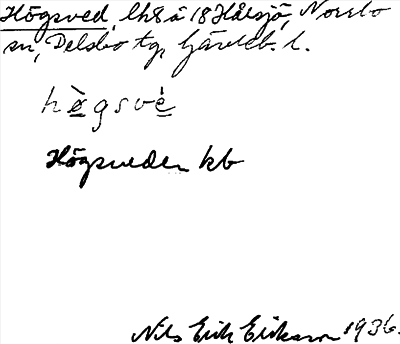 Högsved, lht å 18 Hålsjö, Norrbo
sn, Delsbo tg, Gävleb. l.
hègsvè
Högsveden kb
Nils Erik Eriksson 1936.